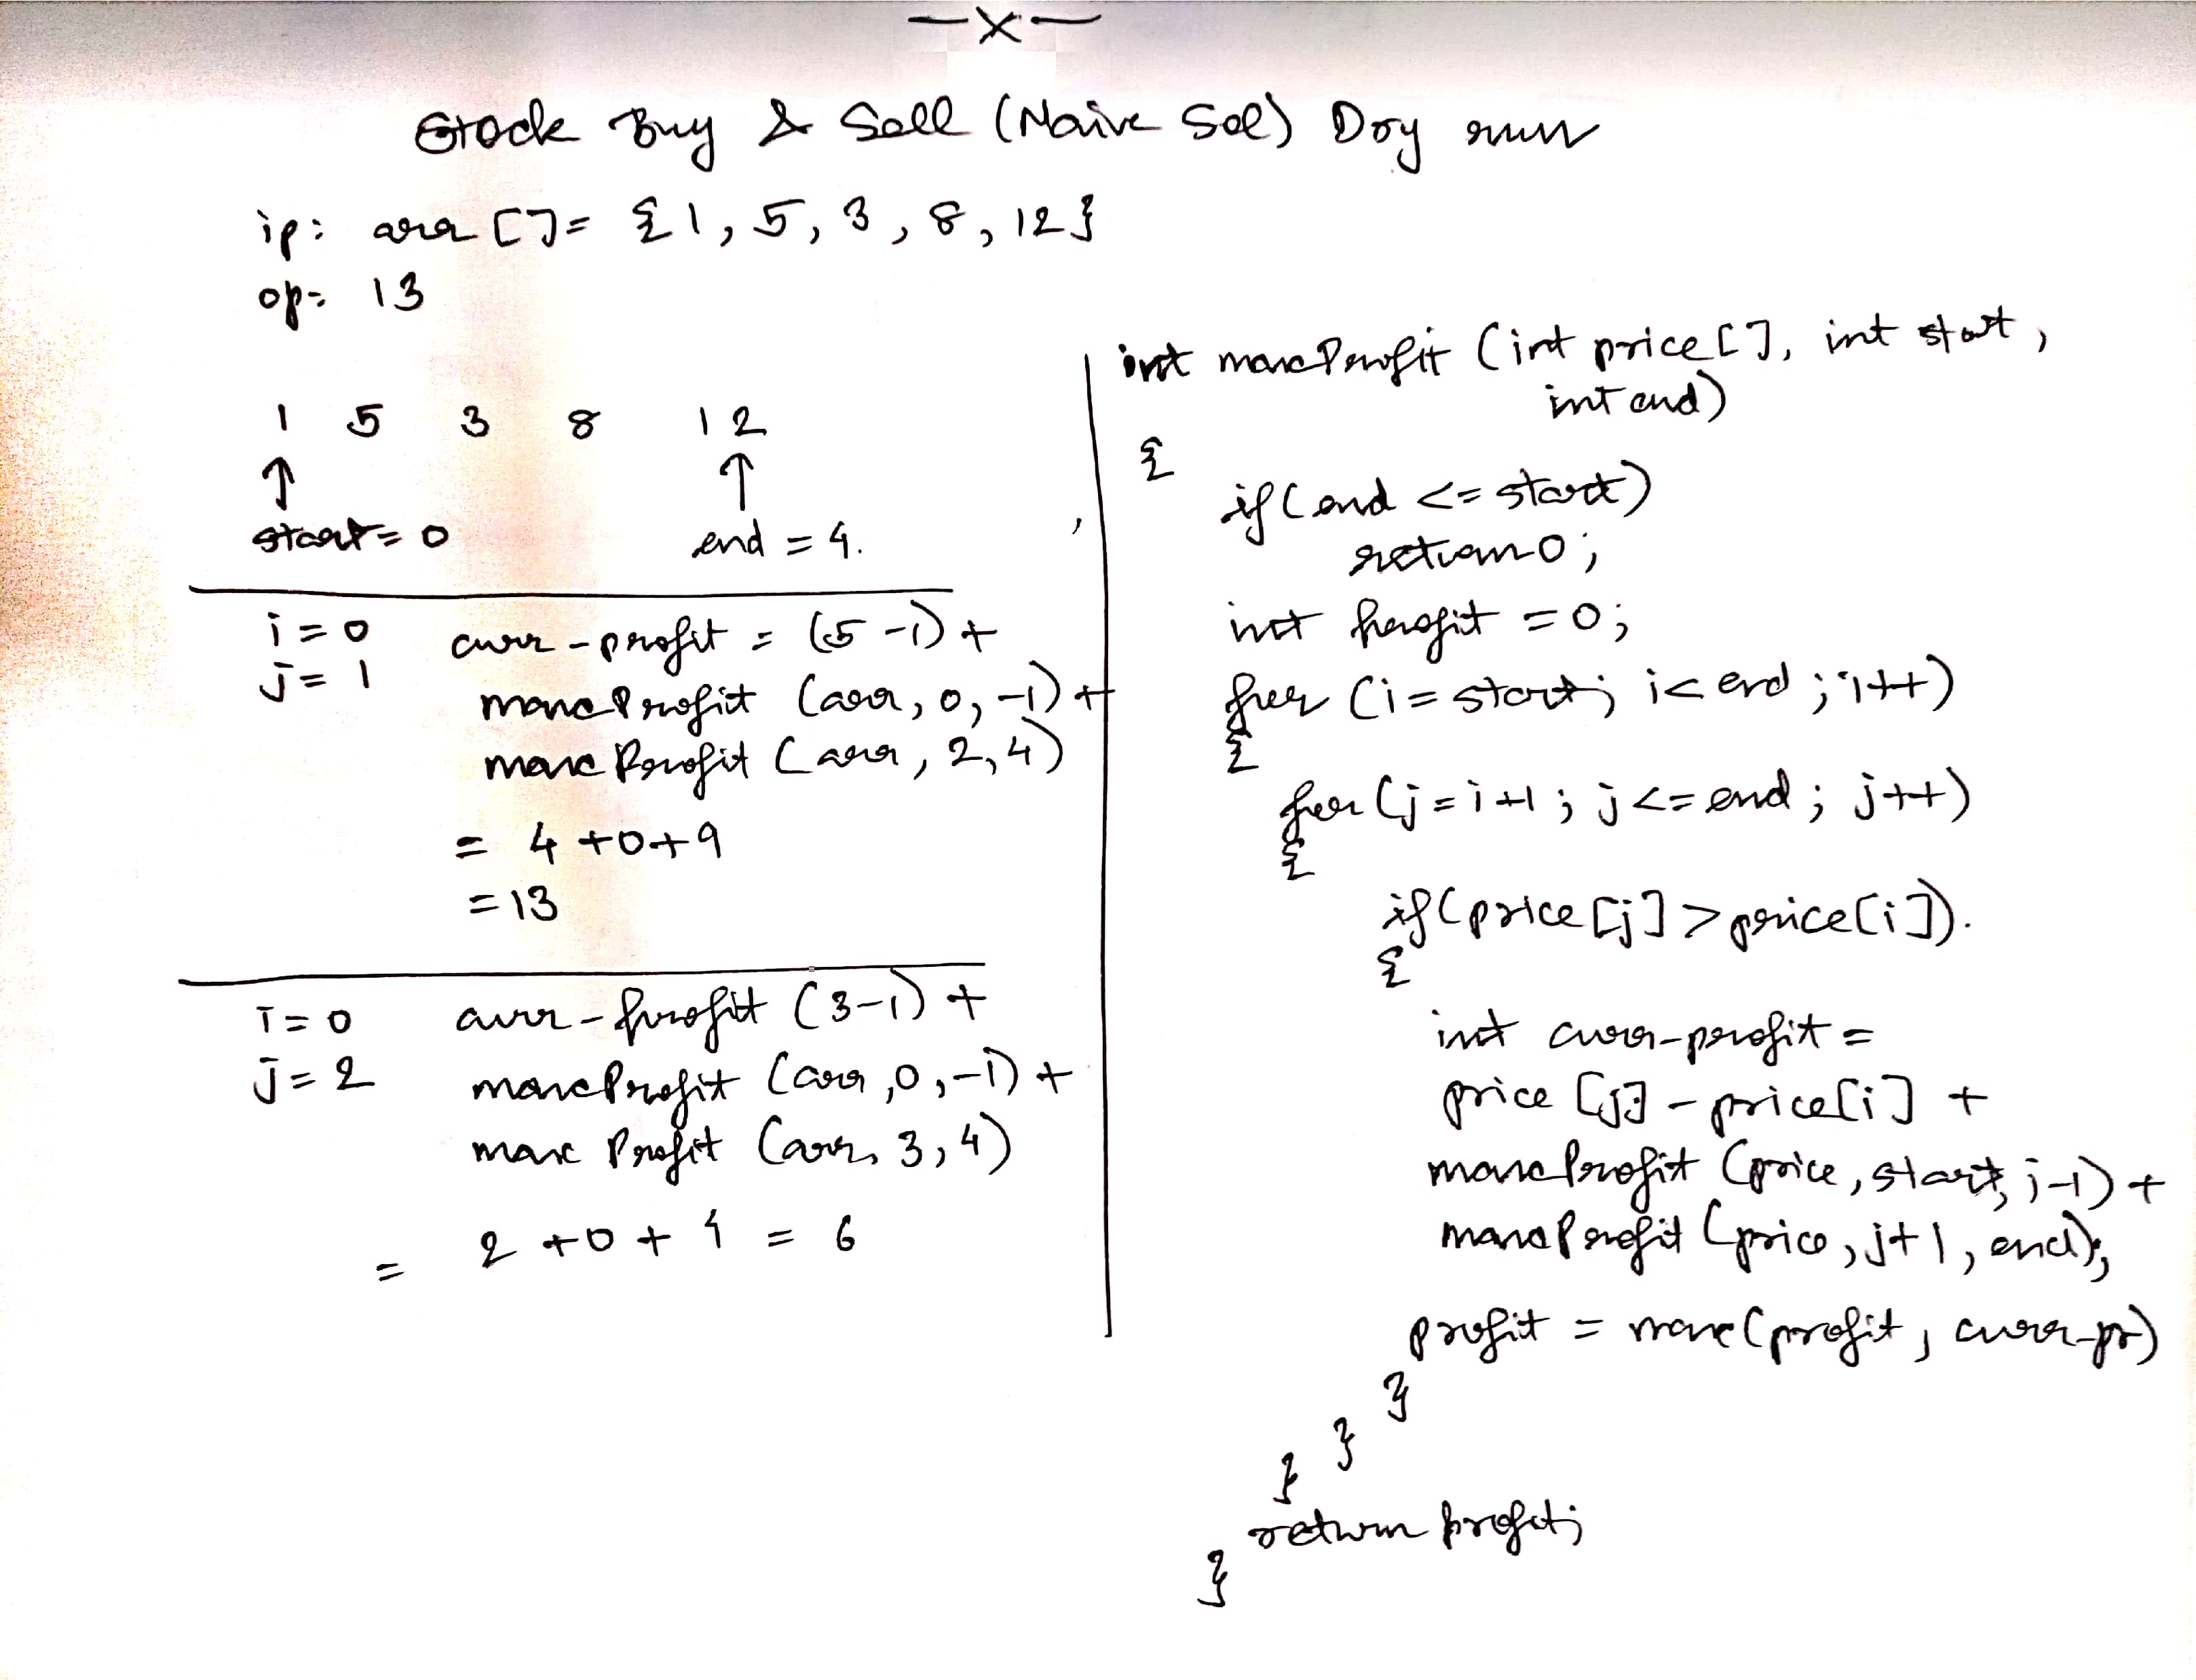 —x—
Stock Buy & Sell (Naive Sol) Dry run
ip: arr []= {1, 5, 3, 8, 12}
op= 13
1 5 3 8 12
↑ ↑
start= 0 end = 4.
i=0 curr-profit = (5-1) +
j= 1 maxProfit (arr, 0, -1) +
max Profit (arr, 2, 4)
= 4 +0+9
=13
i=0 curr-profit (3-1) +
j=2 maxProfit (arr, 0, -1) +
max Profit (arr, 3, 4)
= 2 +0+ 4 = 6
int maxProfit (int price[], int start,
int end)
{
if(end <= start)
return 0;
int profit =0;
for (i= start; i< end; i++)
{
for (j=i+1; j<=end; j++)
{
if(price[j] > price[i]).
{
int curr-profit=
price [j] - price[i] +
maxProfit (price, start, i-1) +
maxProfit (price, j+1, end);
profit = max(profit, curr-pr)
}
}
}
return profit;
}